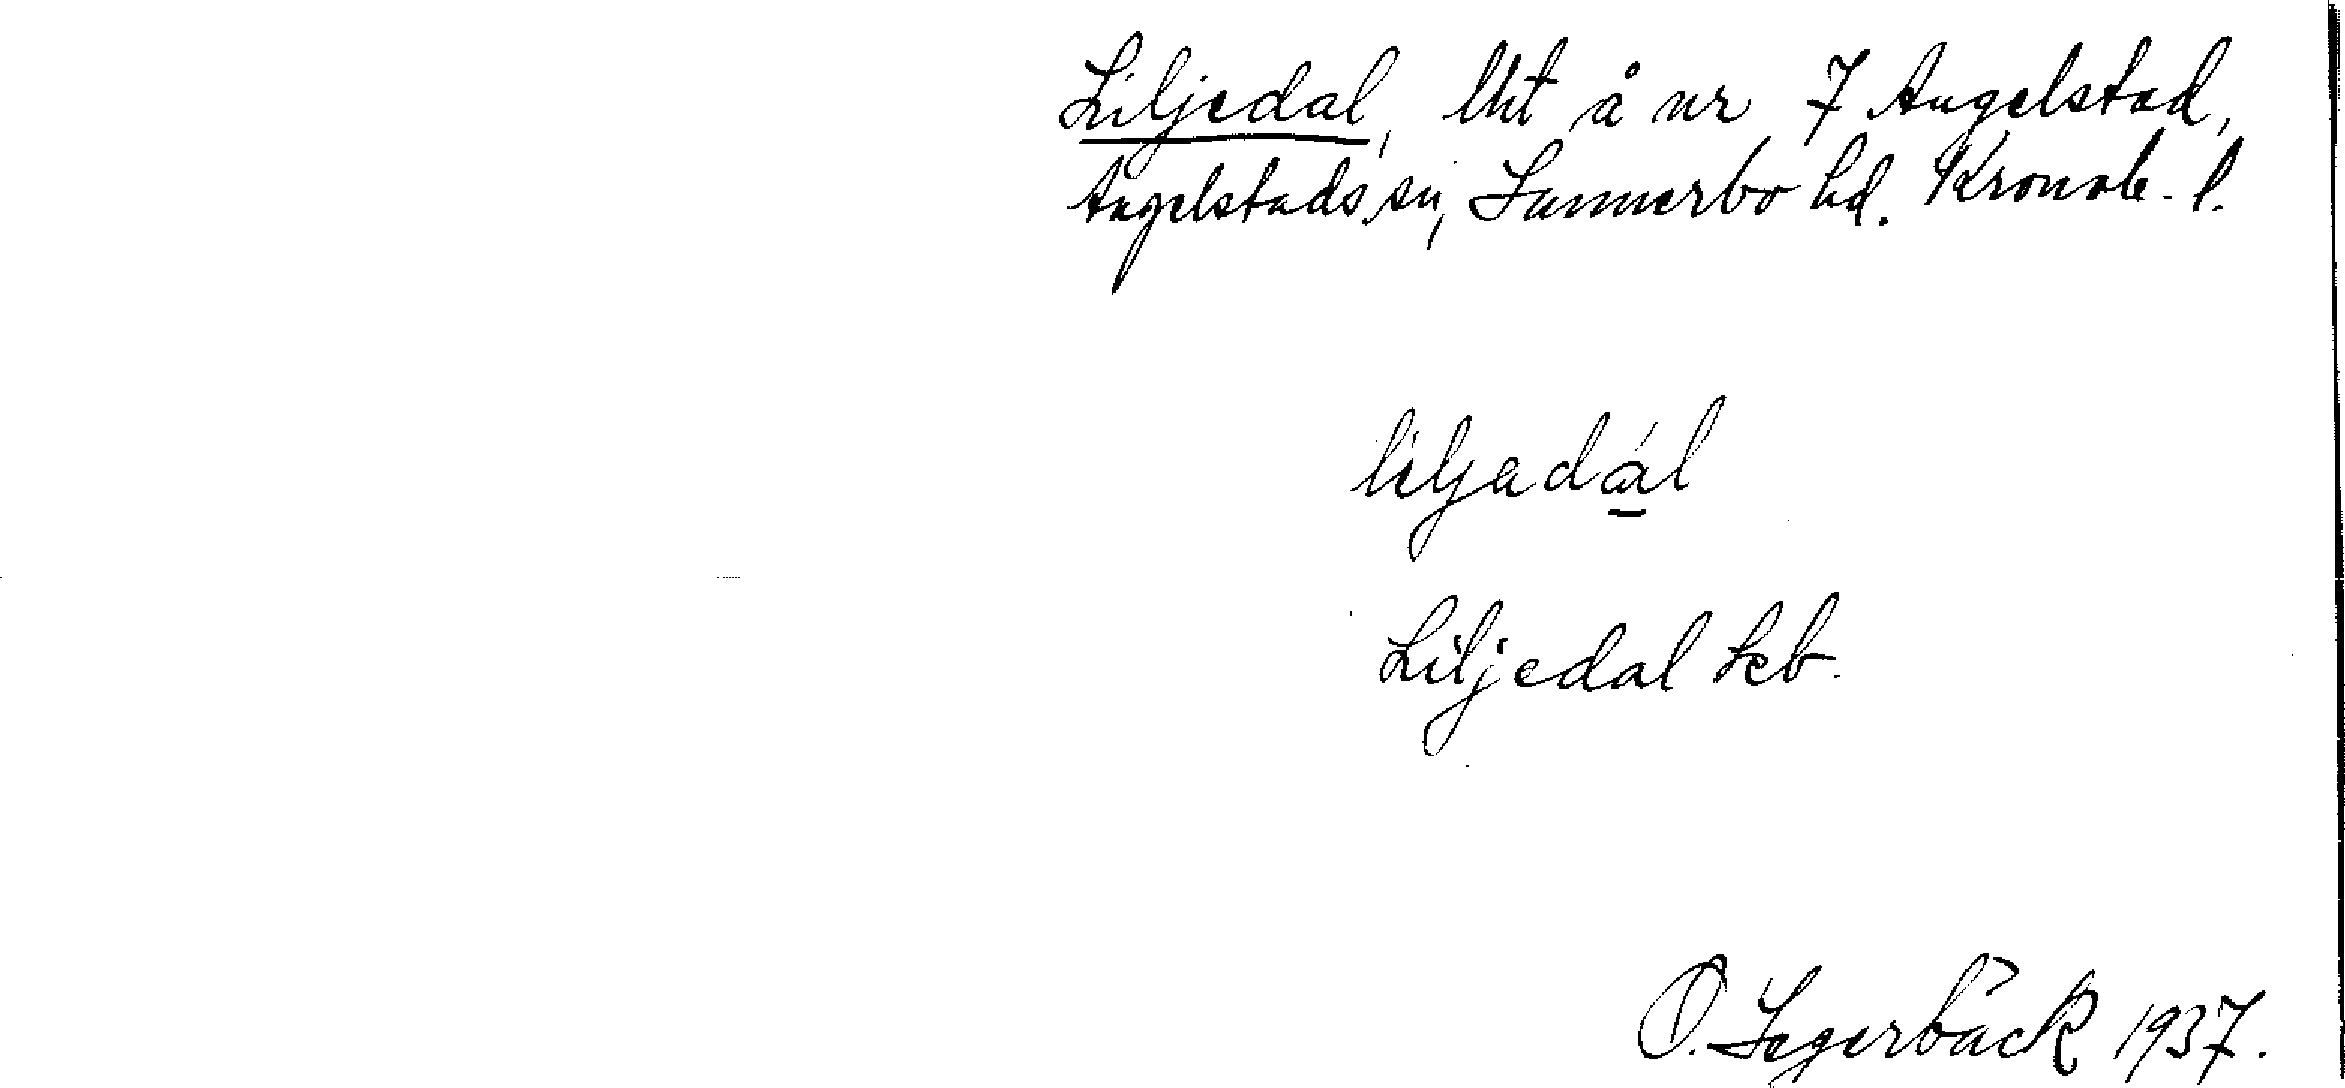 Liljedal, lht å nr 7 Angelstad,
Angelstads sn, Sunnerbo hd. Kronob. l.
liljadál
Liljedal Jeb.
O. Segerbäck 1937.